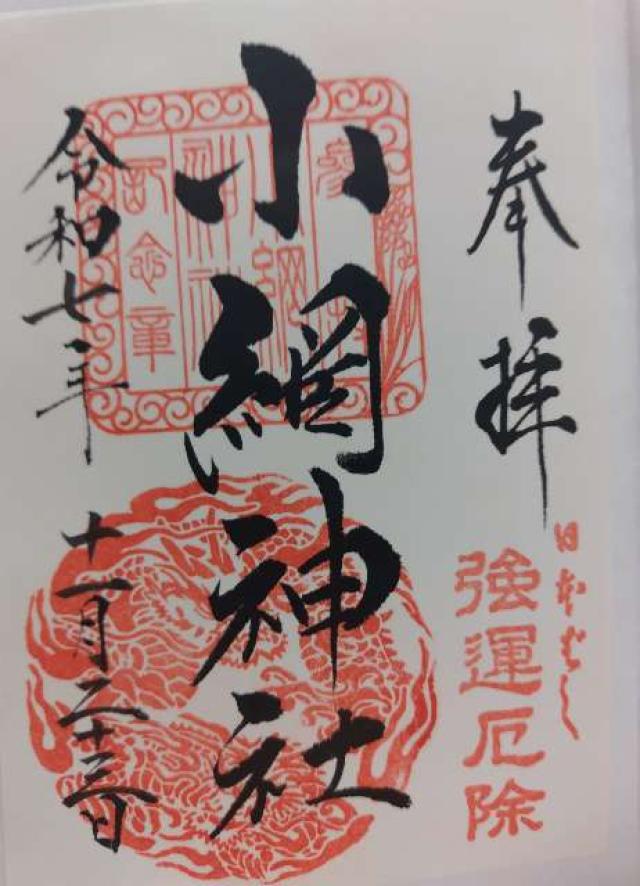 奉拝
日本ばし
強運厄除
小網神社
令和七年
十一月二十三日
小網
神社
記念章